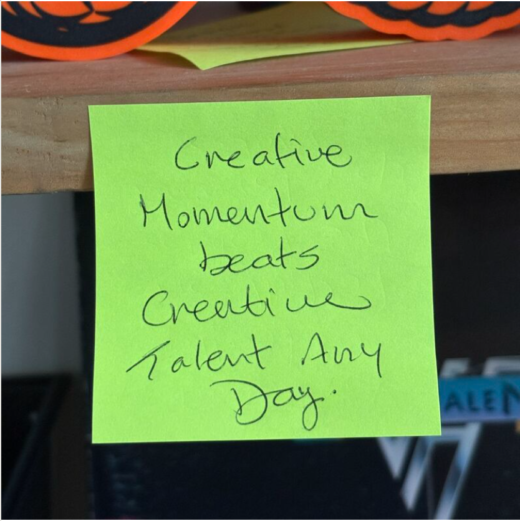 Creative
Momentum
beats
Creative
Talent Any
Day.
ALEN